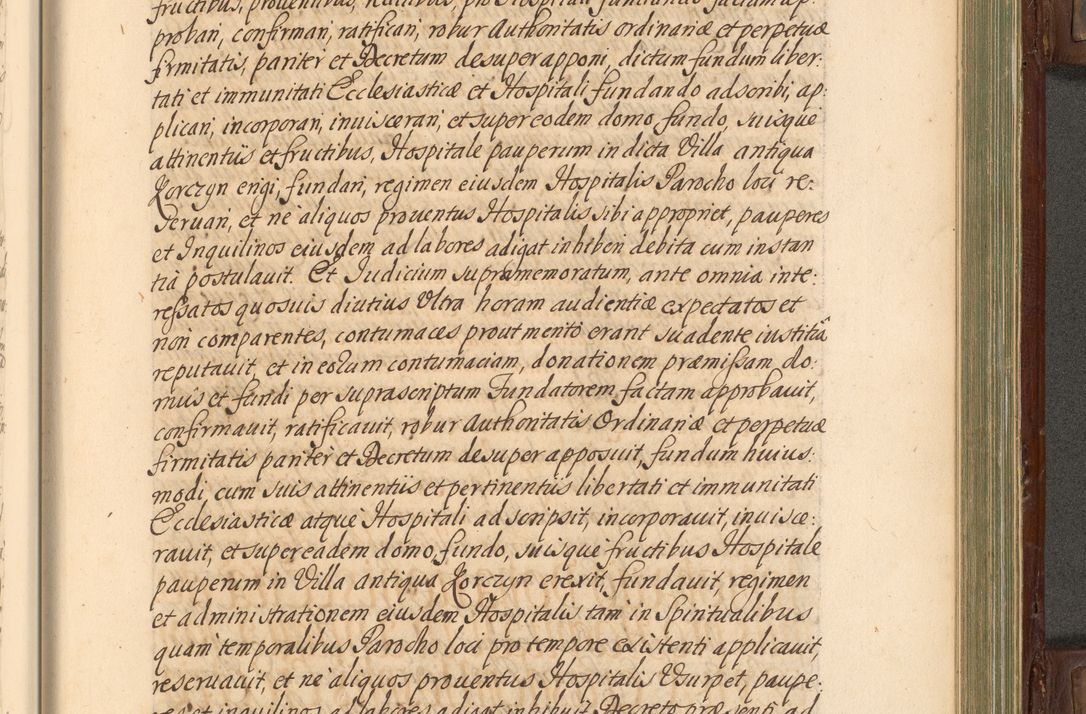 fructibus, proventibus, redditibus, pro Hospitali fundando factam ap-
proban, confirman, ratifican, robur Authoritatis ordinariæ et perpetuæ
firmitatis, pariter et Decretum desuper apponi, dictum fundum liber:
tati et immunitati Ecclesiasticæ et Hospitali fundando adscribi, ap-
plicari, incorporari, inuiscerari, et super eodem domo, fundo, suisque
attinentiis et fructibus, Hospitale pauperum in dicta Villa antiqua
Korczyn erigi, fundari, regimen eiusdem Hospitalis Parocho loci re:
seruari, et ne aliquos prouentus Hospitalis sibi appropriet, pauperes
et Inquilinos eiusdem ad labores adigat inhiberi debita cum instan
tia postulauit. Et Judicium supramemoratum, ante omnia inte:
ressatos quosuis diutius Ultra horam audientiæ expectatos et
non comparentes, contumaces prout mento erant suadente iustitiâ
reputauit, et in eorum contumaciam, donationem præmissam do:
mus et fundi per suprascriptum Fundatorem factam approbauit,
confirmauit, ratificauit, robur Authoritatis Ordinariæ et perpetuæ
firmitatis pariter et Decretum desuper apposuit, fundum huius:
modi, cum suis attinentiis et pertinentiis libertati et immunitati
Ecclesiasticæ atque Hospitali adscripsit, incorporauit, inuisce:
rauit, et super eadem domo, fundo, suisque fructibus Hospitale
pauperum in Villa antiqua Korczyn erexit, fundauit, regimen
et administrationem eiusdem Hospitalis tam in Spiritualibus
quam temporalibus Parocho loci pro tempore existenti applicauit,
reseruauit, et ne aliquos prouentus Hospitalis Usurpet, paupe:
res et inquilinos ad labores adigat inhibuit Decreto præsenti ad